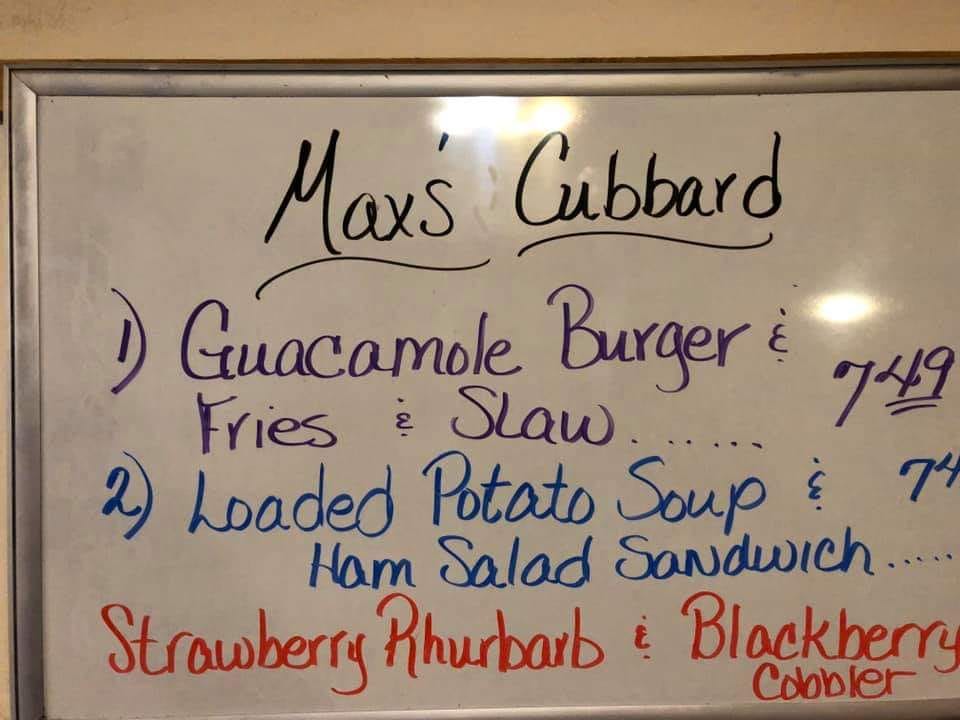 Max's Cubbard
1) Guacamole Burger &
Fries & Slaw....... 7 49
2) Loaded Potato Soup & 74
Ham Salad Sandwich.....
Strawberry Rhurbarb & Blackberry
Cobbler